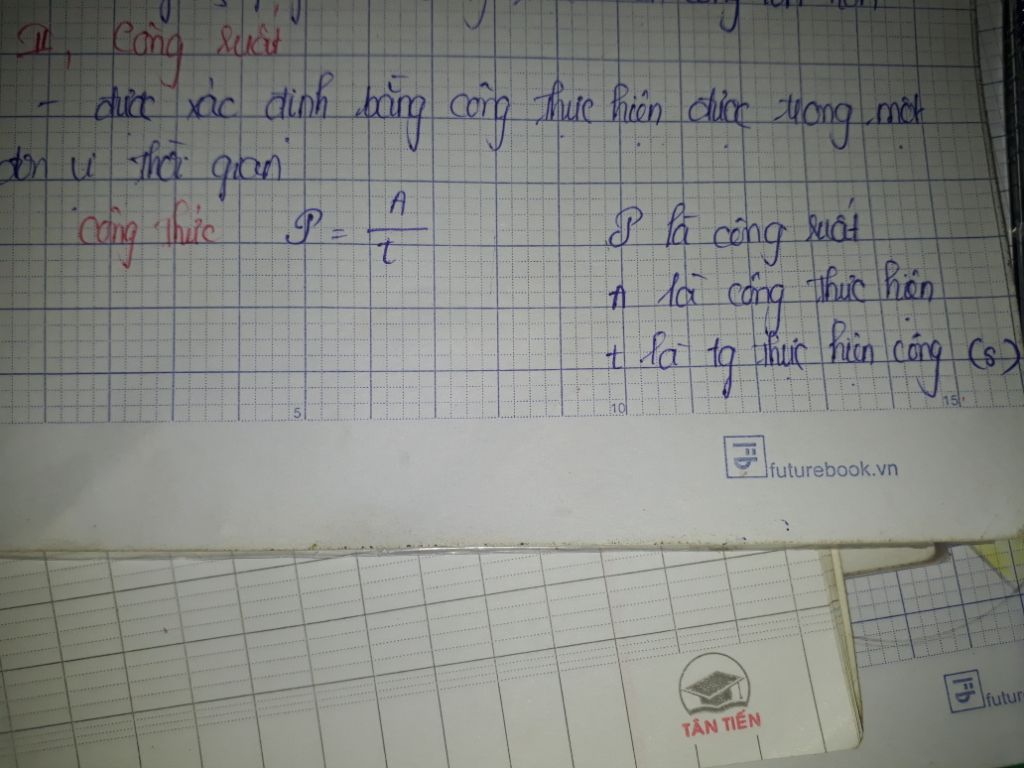 II, Công suất
- được xác định bằng công thực hiện được trong một
đơn vị thời gian
công thức P = A / t
P là công suất
A là công thực hiện
t là tg thực hiện công (s)
5 10 15
futurebook.vn
TÂN TIẾN
futur